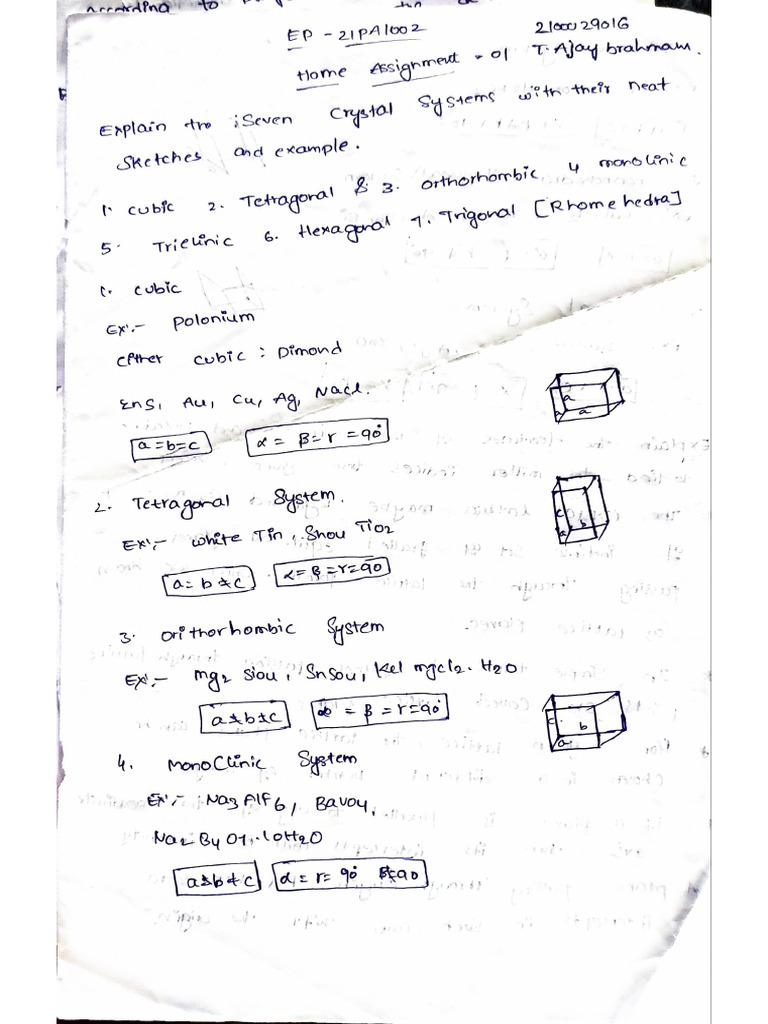 according to
EP - 21PA1002 2100029016
Home Assignment - 01 T. Ajay brahmam.
Explain the : Seven Crystal Systems with their neat
Sketches and example.
1. cubic 2. Tetragonal & 3. orthorhombic 4 monolinic
5. Triclinic 6. Hexagonal 7. Trigonal [Rhomehedra]
1. cubic
Ex:- Polonium
cubic : Dimond
Zns, Au, Cu, Ag, Nacl.
a=b=c α = β = r = 90°
a a a
2. Tetragonal System.
Ex:- white Tin, Snou TiO2
a = b ≠ c α = β = r = 90
c a b
3. Orithorhombic System
Ex:- mg2 siou, Snsou, Kcl mgcl2. H2O
a≠b≠c α = β = r = 90°
c b a
4. MonoClinic System
Ex:- Na3AlF6, Bavo4,
Na2B4O7.10H2O
a≠b≠c α = r = 90° β≠90